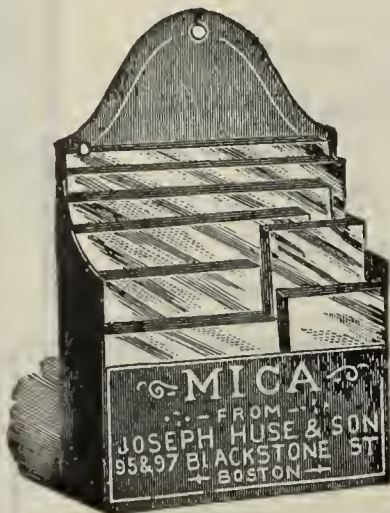 MICA
FROM
JOSEPH HUSE & SON
95&97 BLACKSTONE ST
BOSTON